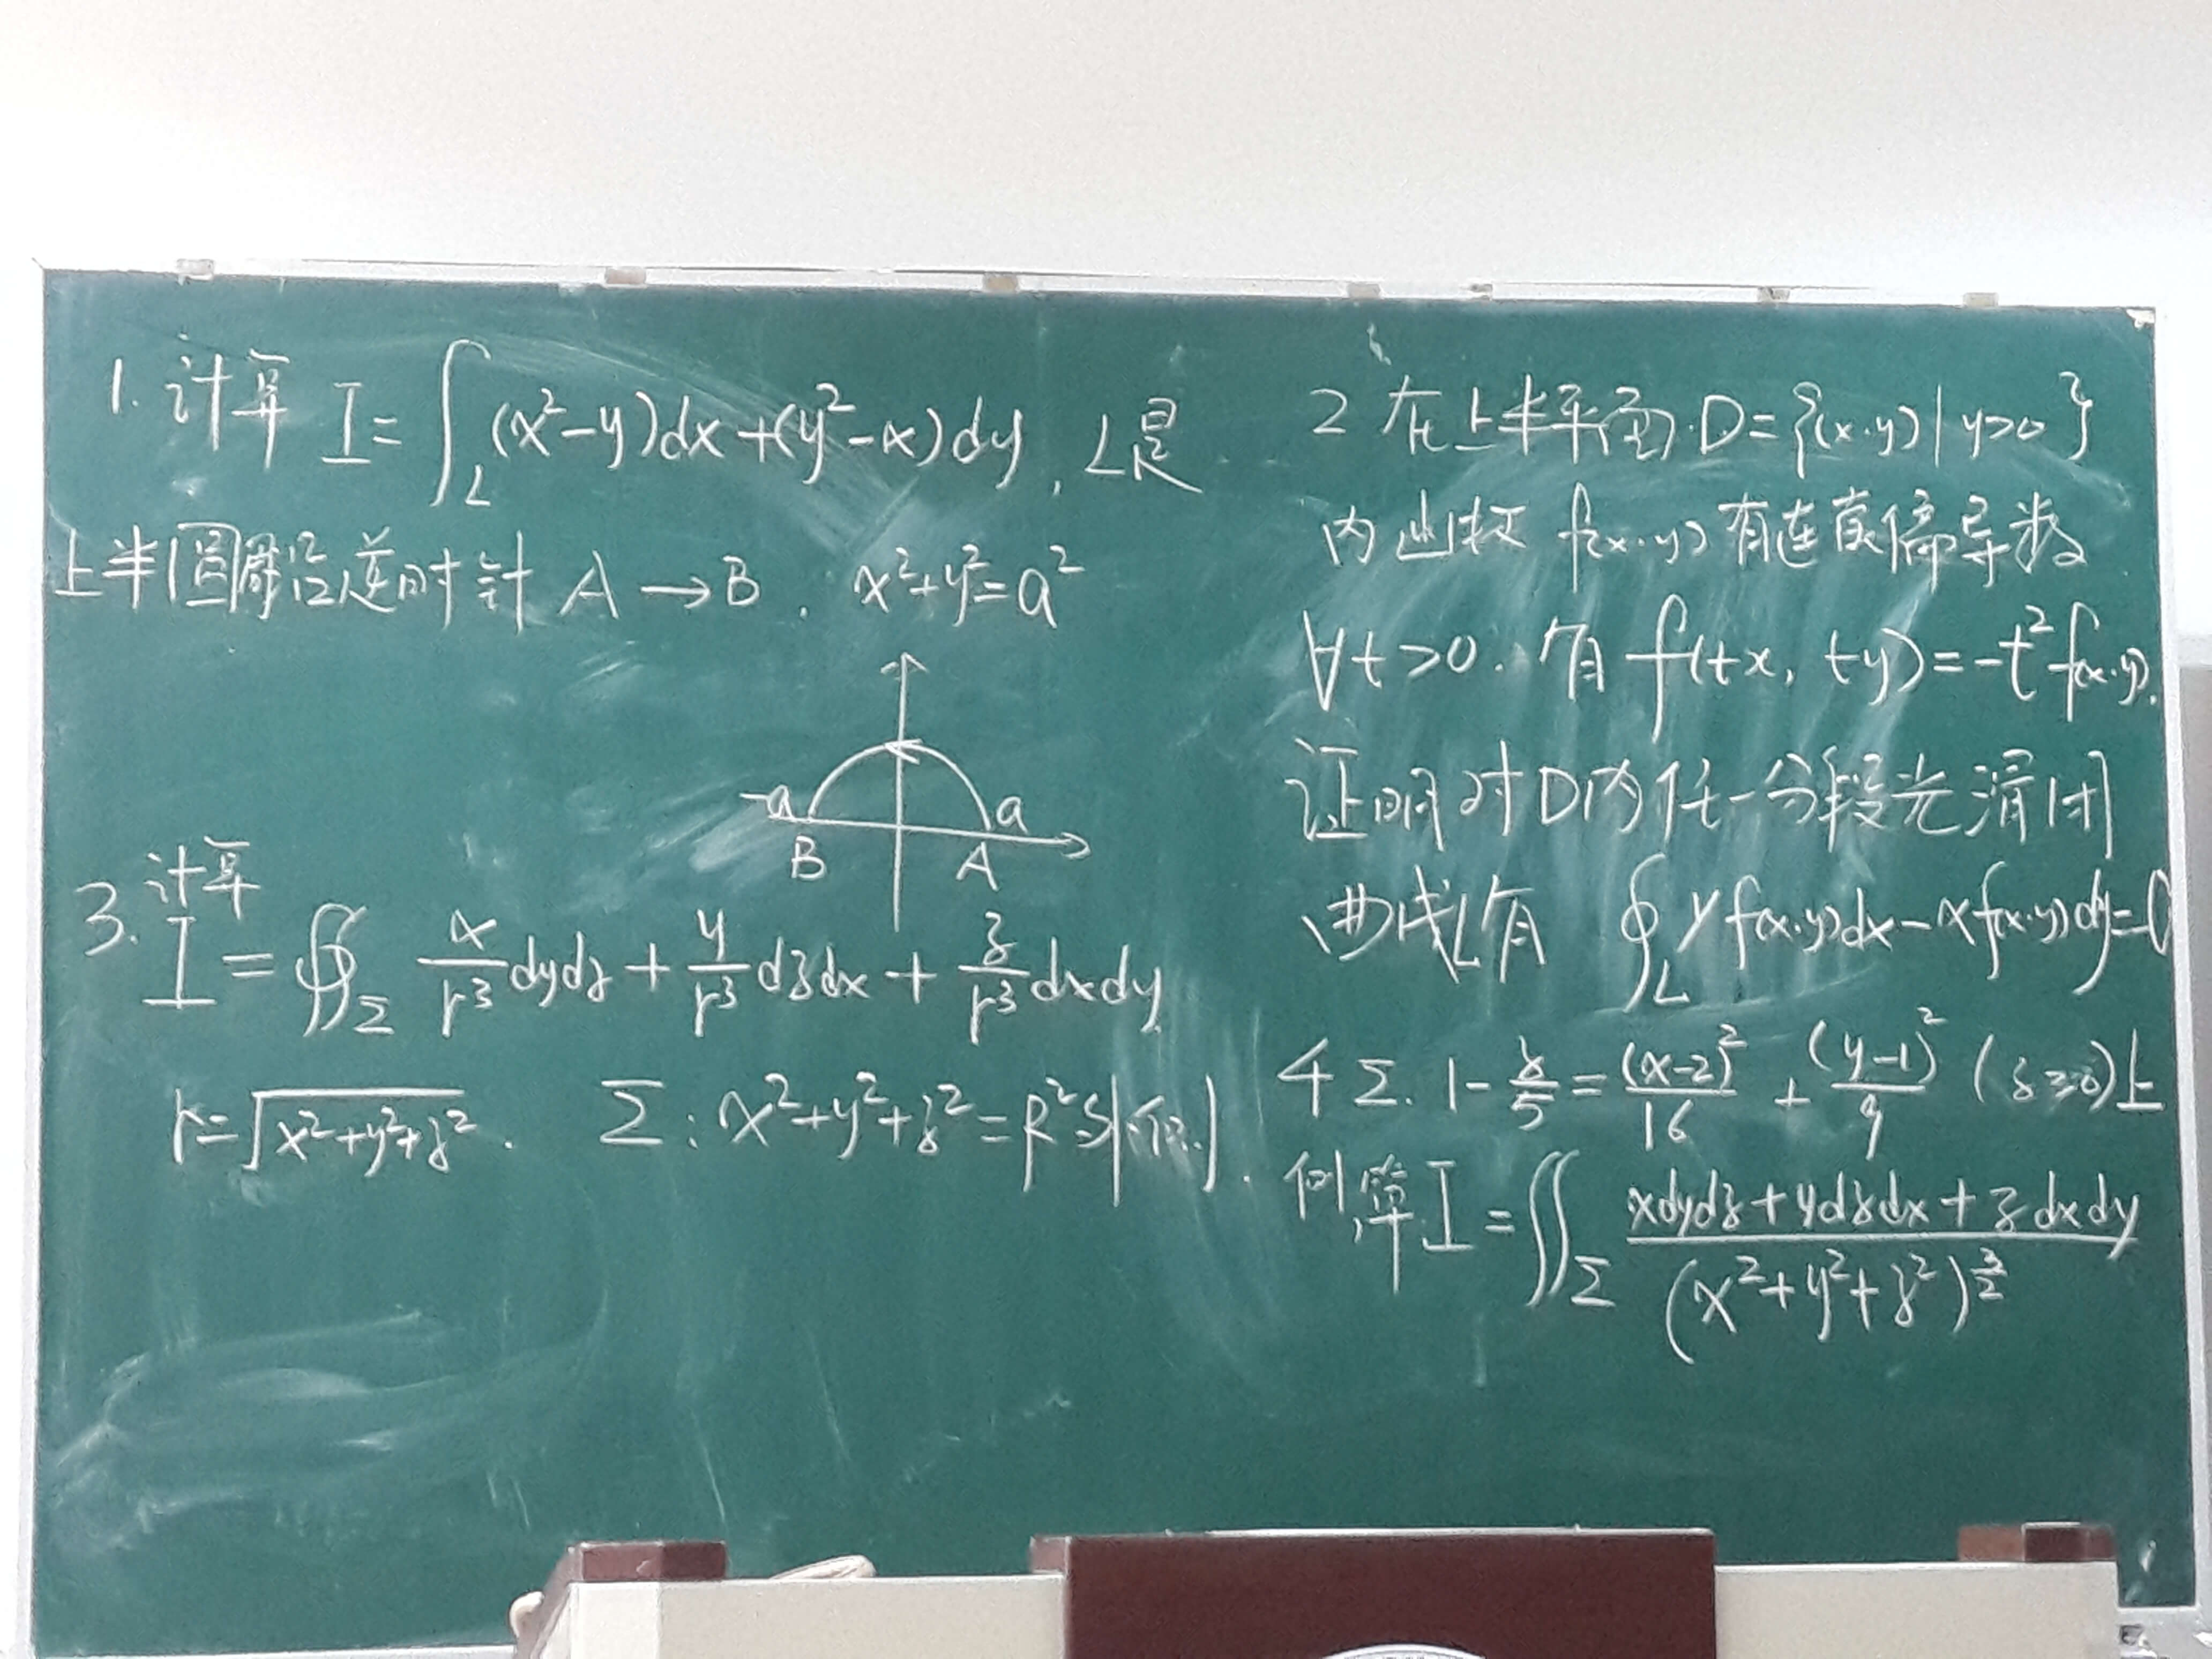 1. 计算 I = ∫_L (x²-y)dx+(y²-x)dy, L是
上半圆周沿逆时针 A→B. x²+y²=a²
-a a
B A
3. 计算
I = ∯_Σ x/r³ dydz + y/r³ dzdx + z/r³ dxdy
r=√(x²+y²+z²). Σ: x²+y²+z²=R² 外侧.
2 在上半平面 D={(x,y)|y>0}
内 f(x,y) 有连续偏导数
∀t>0. 有 f(tx, ty)=-t²f(x,y).
证明对D内任一分段光滑闭
曲线L有 ∮_L yf(x,y)dx-xf(x,y)dy=0
4 Σ. 1-z/5=(x-2)²/16+(y-1)²/9 (z≥0)上
侧, 算 I=∬_Σ (xdydz+ydzdx+zdxdy)/(x²+y²+z²)^(3/2)